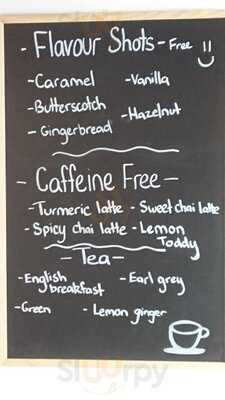 - Flavour Shots - Free
- Caramel - Vanilla
- Butterscotch - Hazelnut
- Gingerbread
- Caffeine Free -
- Turmeric latte - Sweet chai latte
- Spicy chai latte - Lemon Toddy
- Tea -
- English breakfast - Earl grey
- Green - Lemon ginger
sluurpy